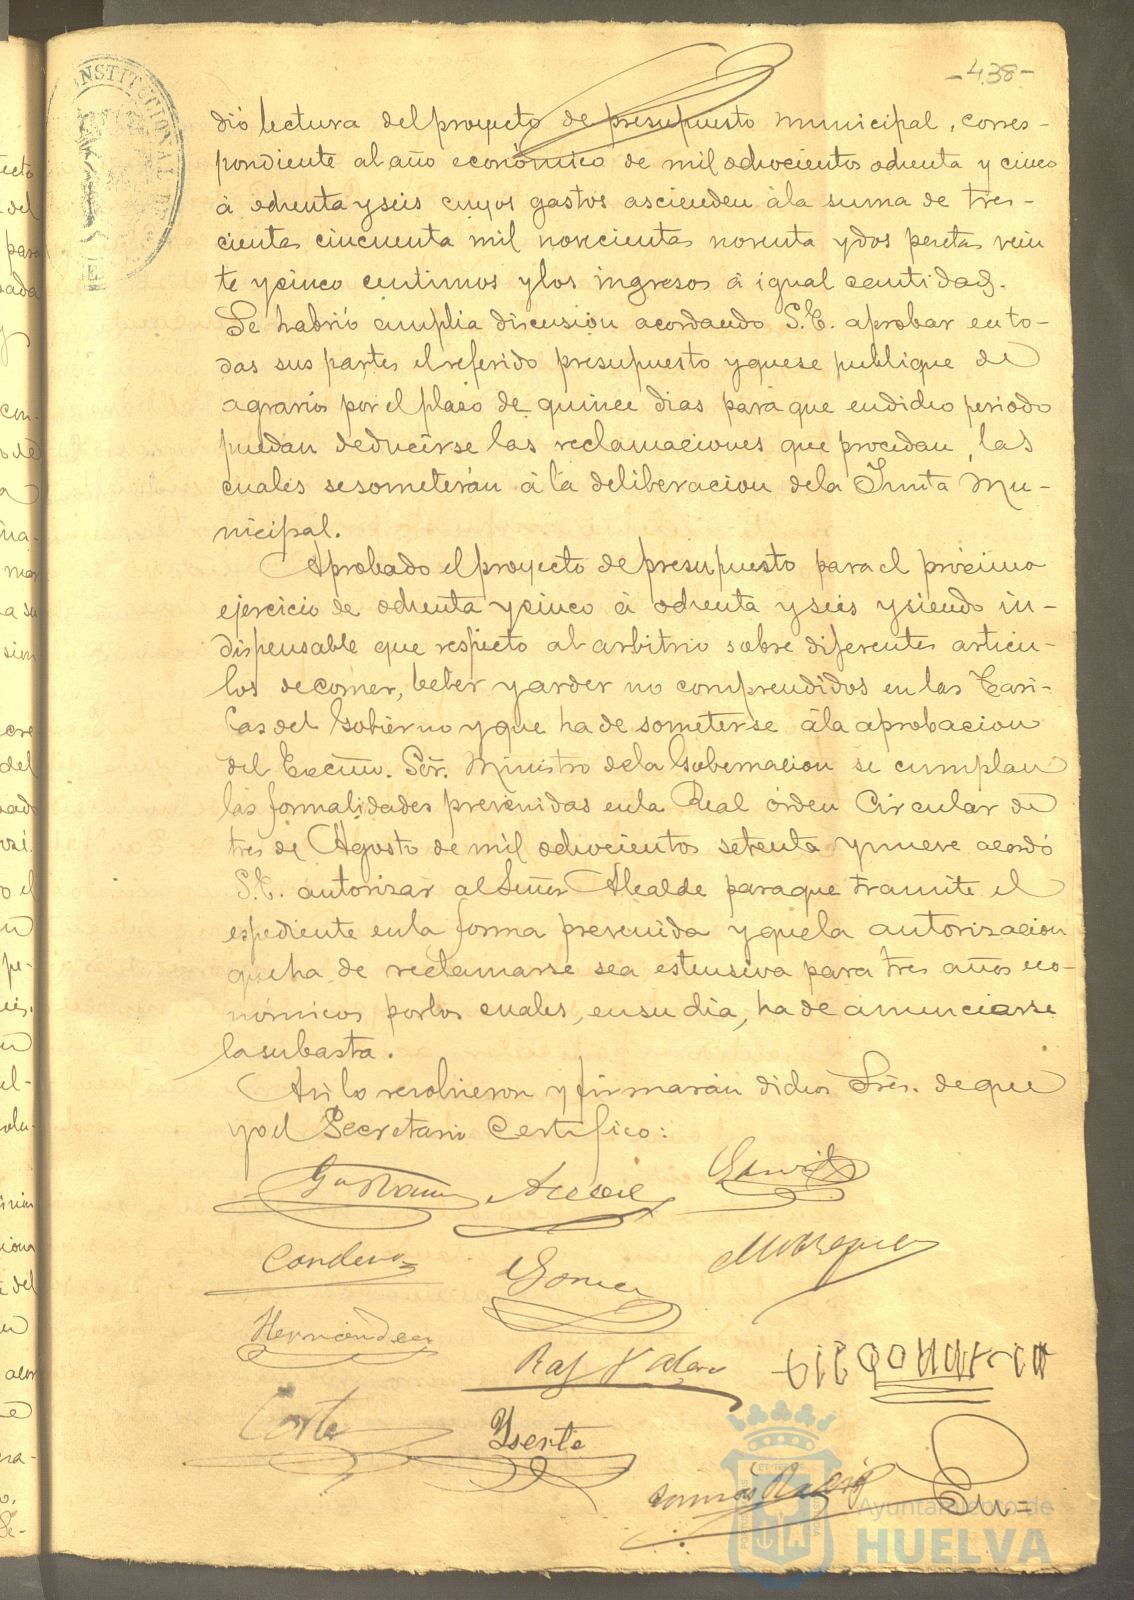 -438-
dió lectura del proyecto de presupuesto municipal, corres-
pondiente al año económico de mil ochocientos ochenta y cinco
á ochenta y seis cuyos gastos ascienden á la suma de tres-
cientas cincuenta mil novecientas noventa y dos pesetas vein
te y cinco centimos y los ingresos á igual cantidad.
Se habrió amplia discusion acordando S.E. aprobar en to-
das sus partes el referido presupuesto y que se publique de
agravios por el plazo de quince dias para que en dicho periodo
puedan deducirse las reclamaciones que procedan, las
cuales se someterán á la deliberacion de la Junta Mu-
nicipal.
Aprobado el proyecto de presupuesto para el próximo
ejercicio de ochenta y cinco á ochenta y seis y siendo in-
dispensable que respecto al arbitrio sobre diferentes artícu-
los de comer, beber y arder no comprendidos en las Tari-
fas del Gobierno y que ha de someterse á la aprobacion
del Excmo. Sor. Ministro de la Gobernacion se cumplan
las formalidades prevenidas en la Real órden Circular de
tres de Agosto de mil ochocientos setenta y nueve acordó
S.E. autorizar al Señor Alcalde para que tramite el
espediente en la forma prevenida y que la autorizacion
que ha de reclamarse sea estensiva para tres años eco-
nómicos por los cuales, en su dia, ha de anunciarse
la subasta.
Asi lo resolvieron y firmarán dichos Sres. de que
yo el Secretario Certifico:
Garcia
Gomez
Hernandez
Raf
Corte
Yserte
En=
CONSTITUCIONAL DE
Ayuntamiento de
HUELVA